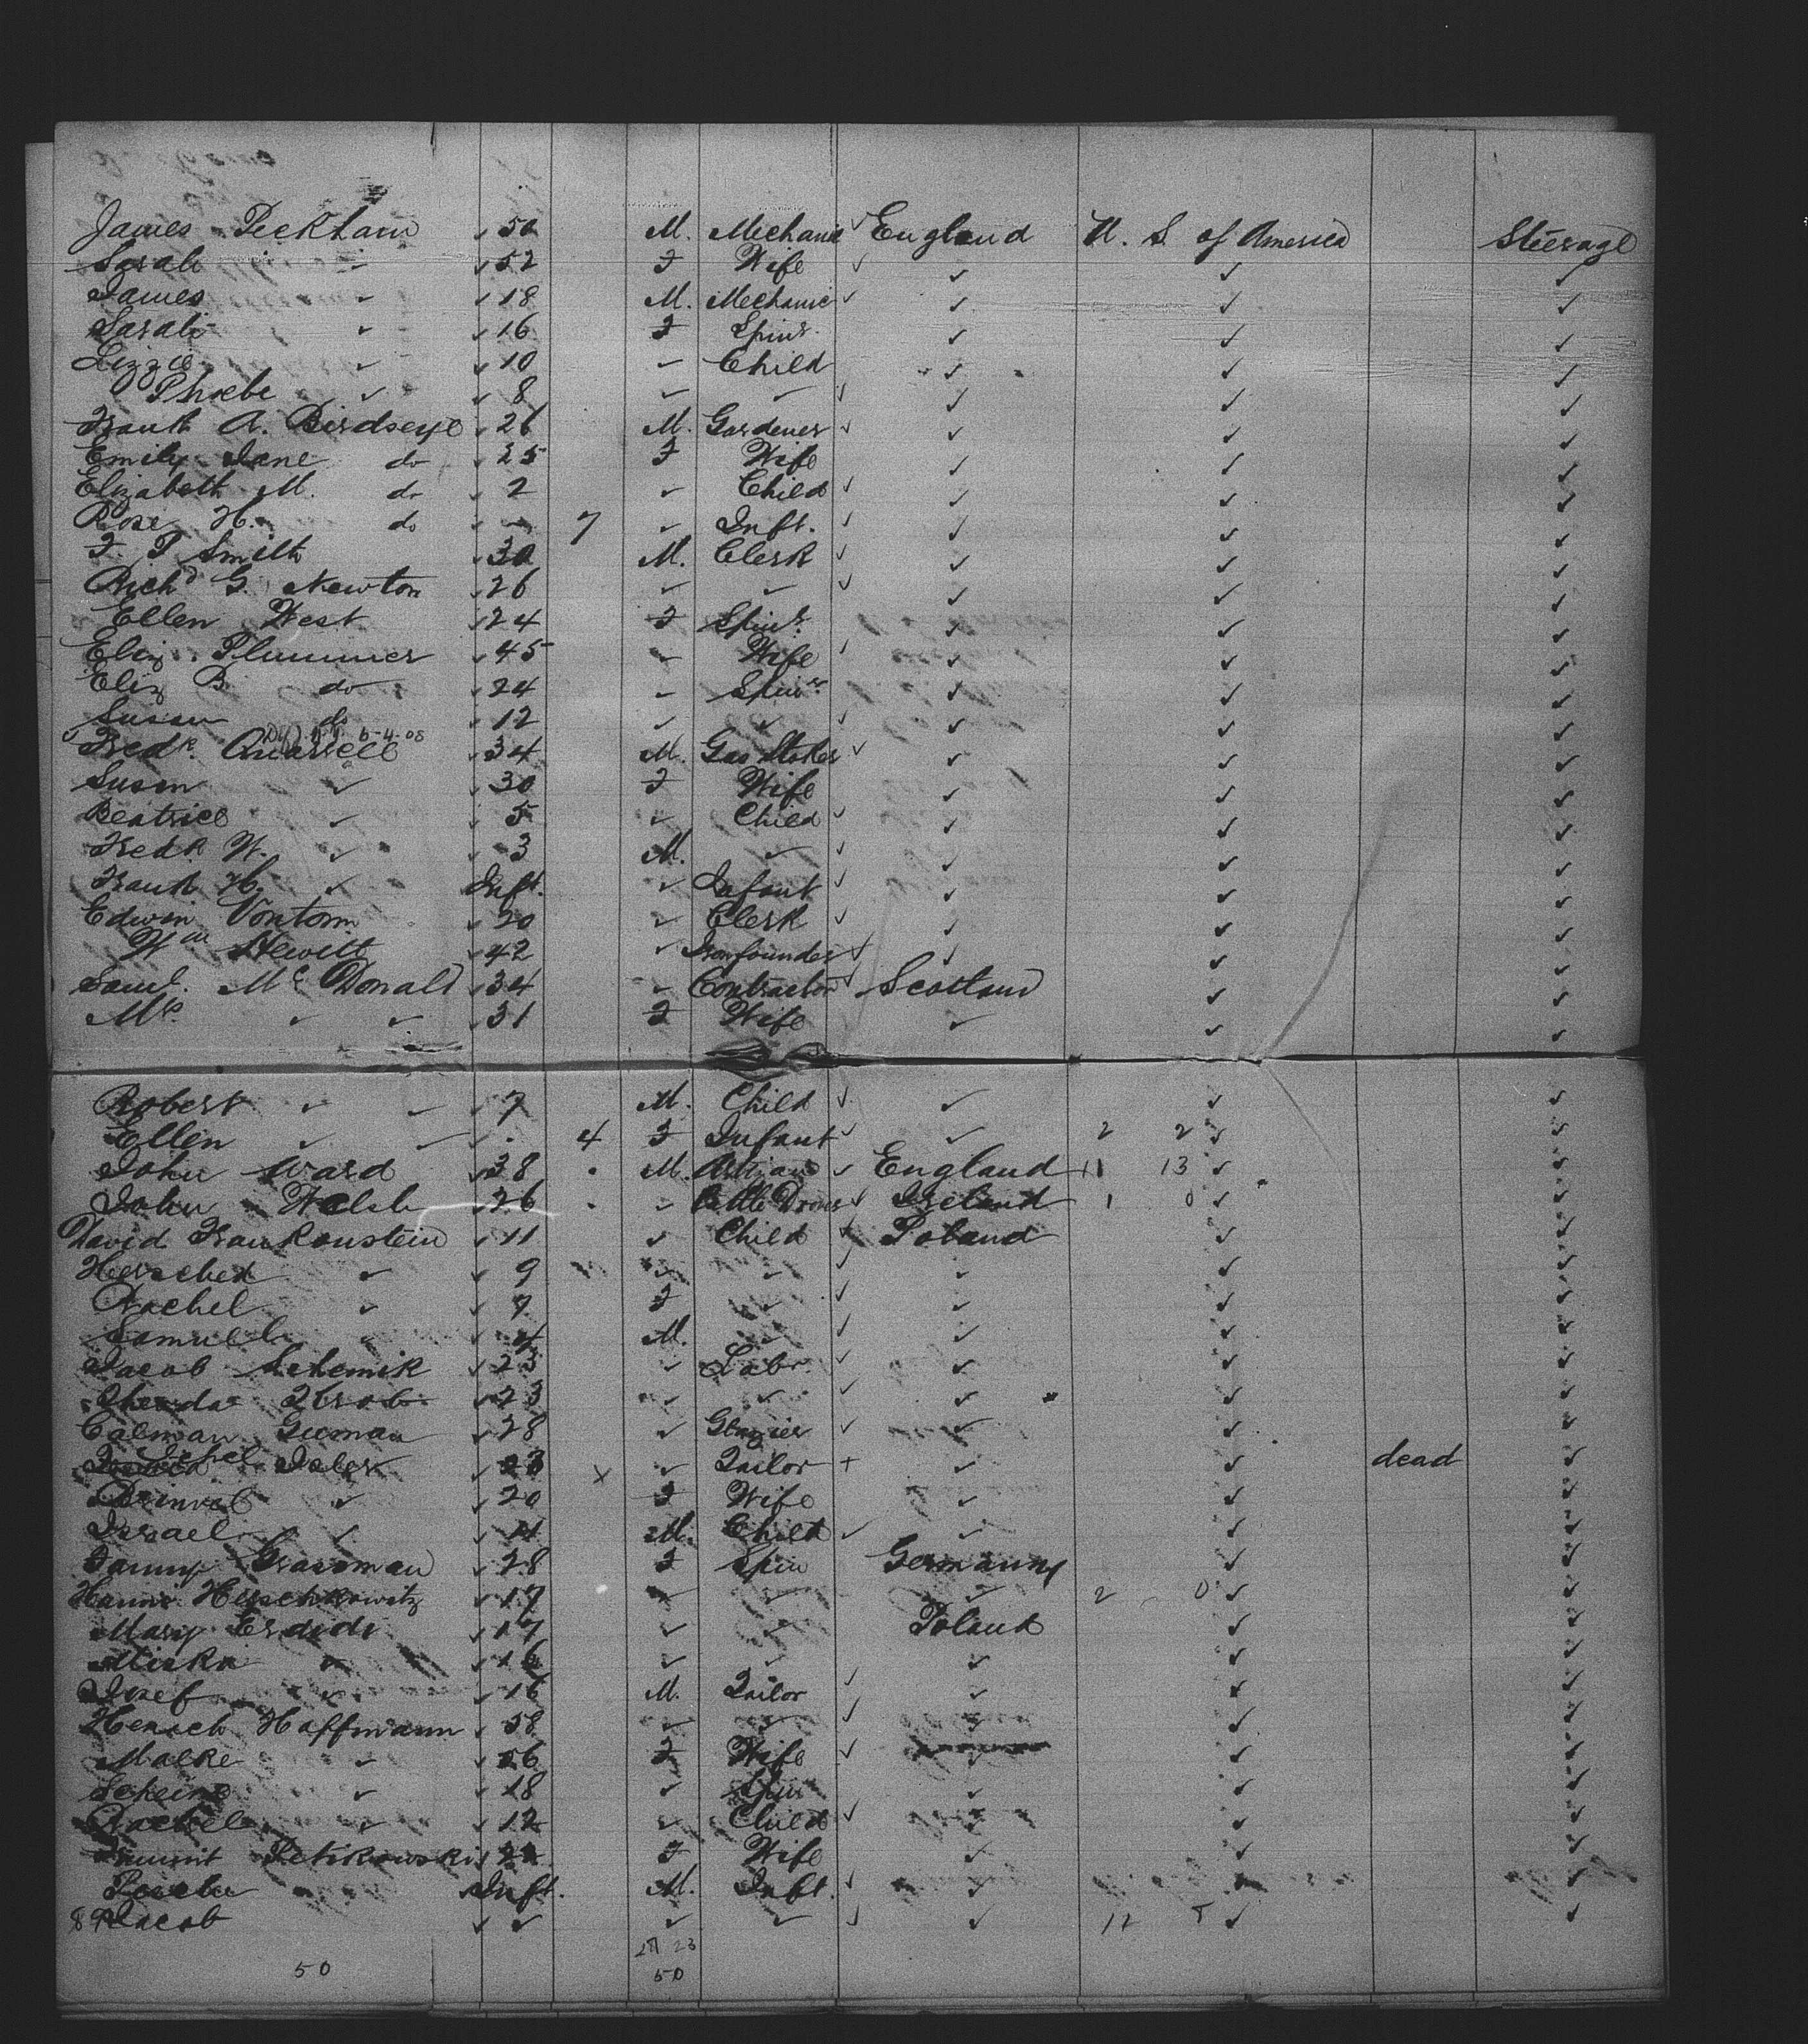 James Peckham ✓ 50 M. Mechanic ✓ England U. S. of America Steerage
Sarah ✓ ✓ 52 F Wife ✓ ✓ ✓ ✓
James ✓ ✓ 18 M. Mechanic ✓ ✓ ✓ ✓
Sarah ✓ ✓ 16 F Spinr. ✓ ✓ ✓
Lizzie ✓ ✓ 10 ✓ Child ✓ ✓ ✓
Phoebe ✓ ✓ 8 ✓ ✓ ✓ ✓ ✓ ✓
Frank A. Birdseye ✓ 26 M. Gardener ✓ ✓ ✓ ✓
Emily Jane do ✓ 25 F Wife ✓ ✓ ✓
Elizabeth M. do ✓ 2 ✓ Child ✓ ✓ ✓ ✓
Rose H. do ✓ - 7 ✓ Inft. ✓ ✓ ✓ ✓
F. P Smith ✓ 30 M. Clerk ✓ ✓ ✓ ✓
Richd G. Newton ✓ 26 ✓ ✓ ✓ ✓ ✓ ✓
Ellen West ✓ 24 F Spinr. ✓ ✓ ✓
Eliz. Plummer ✓ 45 ✓ Wife ✓ ✓ ✓ ✓
Eliz B do ✓ 24 ✓ Spinr ✓ ✓ ✓
Susan do ✓ 12 ✓ ✓ ✓ ✓ ✓ ✓
5-4-08
Fredk. Quarrell ✓ 34 M. Gas Stoker ✓ ✓ ✓ ✓
Susan ✓ ✓ 30 F Wife ✓ ✓ ✓
Beatrice ✓ ✓ 5 ✓ Child ✓ ✓ ✓ ✓
Fredk W. ✓ ✓ 3 M. ✓ ✓ ✓ ✓ ✓
Frank H. ✓ Inft. ✓ Infant ✓ ✓ ✓ ✓
Edwin ✓ 20 ✓ Clerk ✓ ✓ ✓ ✓
Wm Hewitt ✓ 42 ✓ Ironfounder ✓ ✓ ✓ ✓
Saml. Mc Donald ✓ 34 ✓ Contractor ✓ Scotland ✓ ✓
✓ ✓ ✓ 31 F Wife ✓ ✓ ✓
Robert ✓ ✓ ✓ 7 M. Child ✓ ✓ ✓ ✓
Ellen ✓ ✓ ✓ - 4 F Infant ✓ ✓ 2 2 ✓ ✓
John Ward ✓ 38 M. Artizan ✓ England 11 13 ✓ ✓
John Walsh ✓ 26 ✓ Cattle Drover ✓ Ireland 1 0 ✓ ✓
David Frankonstein ✓ 11 ✓ Child ✓ Poland ✓ ✓
Herschel ✓ ✓ 9 ✓ ✓ ✓ ✓ ✓
Rachel ✓ ✓ 7 F ✓ ✓ ✓ ✓ ✓
Samuel ✓ ✓ 4 M. ✓ ✓ ✓ ✓ ✓
Jacob ✓ 23 ✓ Labr. ✓ ✓ ✓ ✓
✓ 23 ✓ ✓ ✓ ✓ ✓ ✓
Calman Guman ✓ 28 ✓ Glazier ✓ ✓ ✓ ✓
Isler ✓ 23 x ✓ Tailor + ✓ ✓ dead ✓
✓ ✓ 20 F Wife ✓ ✓ ✓
Israel ✓ ✓ M. Child ✓ ✓ ✓ ✓
Fanny Grassman ✓ 28 F Spin Germany ✓ ✓
Hanni Herschkowitz ✓ 17 ✓ ✓ ✓ 2 0 ✓ ✓
Mary Erdidi ✓ 17 ✓ ✓ Poland ✓ ✓
✓ ✓ 16 ✓ ✓ ✓ ✓ ✓
Josef ✓ ✓ 16 M. Tailor ✓ ✓ ✓ ✓
Hersch Hoffmann ✓ 58 ✓ ✓ ✓ ✓ ✓ ✓
Malke ✓ ✓ 56 F Wife ✓ ✓ ✓ ✓
Scheine ✓ ✓ 18 ✓ Spin ✓ ✓ ✓
Rachel ✓ ✓ 12 ✓ Child ✓ ✓ ✓ ✓
Petikowski ✓ 22 F Wife ✓ ✓ ✓
Inft. M. Inft. ✓ ✓ ✓ ✓
89 Jacob ✓ ✓ ✓ ✓ ✓ ✓ 12 5 ✓ ✓
27 23
50 50